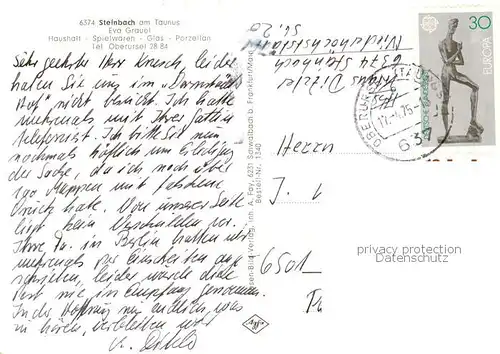 6374 Steinbach am Taunus
Eva Grauel
Haushalt - Spielwaren - Glas - Porzellan
Tel. Oberursel 28 84
Sehr geehrter Herr Knesch, leider
haben Sie uns im "Darmstädter
Hof" nicht besucht. Ich hatte
mehrmals mit Ihrer Gattin
telefoniert. Ich bitte Sie nun
nochmals höflich um Erledigung
der Sache, da ich noch über
190 Mappen mit falschem
Druck habe. Von unserer Seite
liegt kein Verschulden vor.
Ihre Fa. in Berlin hatten wir
mehrmals per Einschreiben an-
geschrieben, leider wurde diese
Post nie in Empfang genommen.
In der Hoffnung nun endlich was
zu hören, verbleiben wir
6374 Steinbach
Niederhöchstädter
Str. 20
Herrn
J.
6501
30
EUROPA
DEUTSCHE BUNDESPOST
OBERURSEL (TAUNUS)
637
Verlag, Inh. A. Fay, 6231 Schwalbach b. Frankfurt/Main
Bestell-Nr. 1340
Agfa
privacy protection
Datenschutz